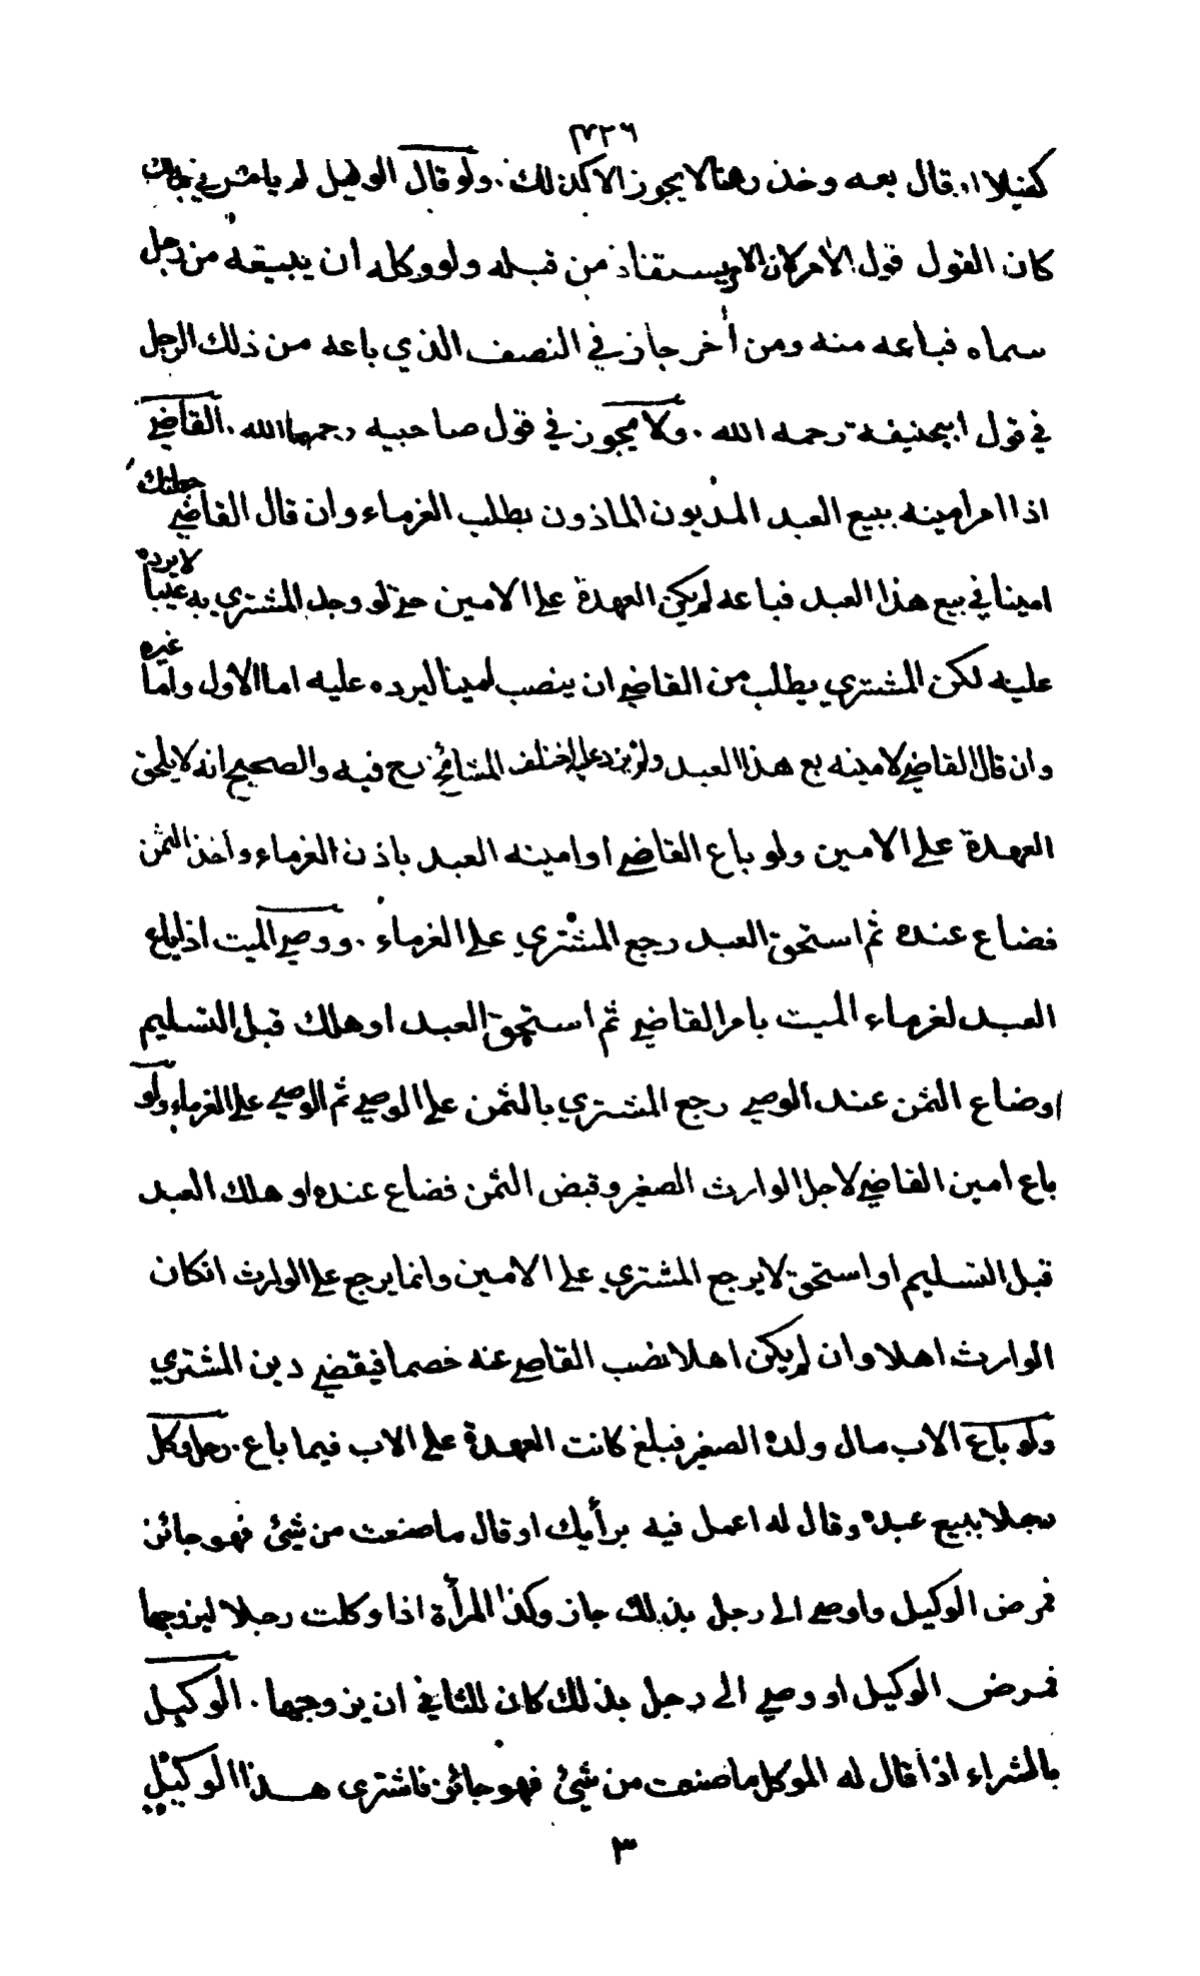 ٣٢٦
كفيلا او قال بعه وخذ رهنا لا يجوز الا كذلك . ولو قال الوكيل لم يامرني بذلك
كان القول قول الامر لان الامر يستفاد من قبله ولو وكله ان يبيعه من رجل
سماه فباعه منه ومن أخر جاز في النصف الذي باعه من ذلك الرجل
في قول ابيحنيفة رحمه الله . ولا يجوز في قول صاحبيه رحمهما الله . القاضي
اذا امر امينه ببيع العبد المديون الماذون بطلب الغرماء وان قال القاضي جعلتك
امينا في بيع هذا العبد فباعه لم يكن العهدة على الامين حتى لو وجد المشتري به عيبا لا يرده
عليه لكن المشتري يطلب من القاضي ان ينصب امينا ليرده عليه اما الاول واما غيره
وان قال القاضي لامينه بع هذا العبد ولم يزد عليه اختلف المشائخ رح فيه والصحيح انه لا يلحق
العهدة على الامين ولو باع القاضي او امينه العبد باذن الغرماء واخذ الثمن
فضاع عنده ثم استحق العبد رجع المشتري على الغرماء . ووصي الميت اذا باع
العبد لغرماء الميت بامر القاضي ثم استحق العبد او هلك قبل التسليم
اوضاع الثمن عند الوصي رجع المشتري بالثمن على الوصي ثم الوصي على الغرماء ولو
باع امين القاضي لاجل الوارث الصغير وقبض الثمن فضاع عنده او هلك العبد
قبل التسليم او استحق لا يرجع المشتري على الامين وانما يرجع على الوارث انكان
الوارث اهلا وان لم يكن اهلا نصب القاضي عنه خصما فيقضي دين المشتري
ولو باع الاب مال ولده الصغير فبلغ كانت العهدة على الاب فيما باع . رجل وكل
رجلا ببيع عبده وقال له اعمل فيه برأيك او قال ما صنعت من شيئ فهو جائز
فمرض الوكيل واوصى الى رجل بذلك جاز وكذا المرأة اذا وكلت رجلا ليزوجها
فمرض الوكيل او وصي الى رجل بذلك كان للثاني ان يزوجها . الوكيل
بالشراء اذا قال له الموكل ما صنعت من شيئ فهو جائز فاشترى هذا الوكيل
٣